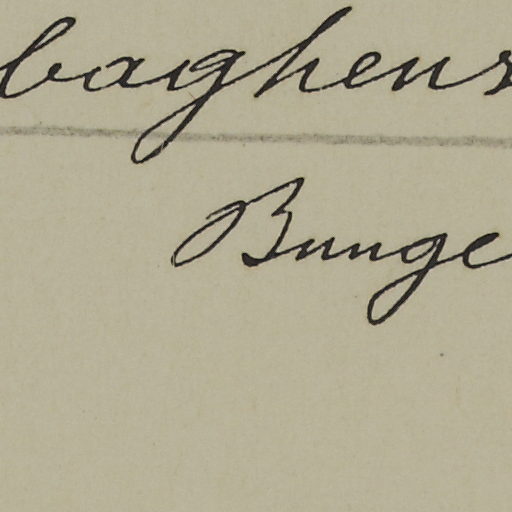 baghens
Bunge